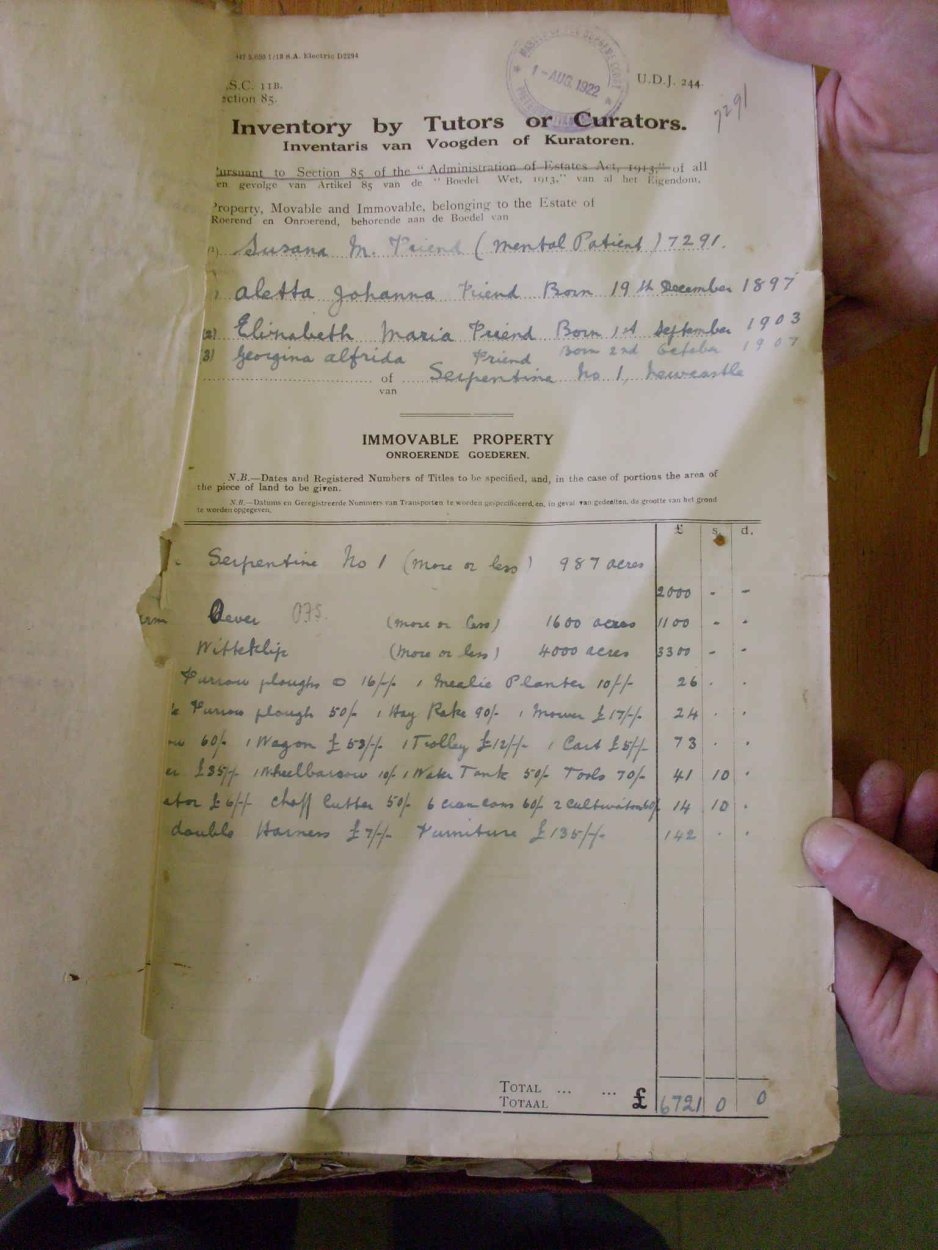 S.C. 11B.
ection 85.
1-AUG.1922
U.D.J. 244.
7291
Inventory by Tutors or Curators.
Inventaris van Voogden of Kuratoren.
ursuant to Section 85 of the "Administration of Estates Act, 1913," of all
en gevolge van Artikel 85 van de "Boedel Wet, 1913," van al het Eigendom,
Property, Movable and Immovable, belonging to the Estate of
Roerend en Onroerend, behorende aan de Boedel van
Susana M. Friend (Mental Patient) 7291.
Aletta Johanna Friend Born 19th December 1897
(2) Elizabeth Maria Friend Born 1st September 1903
(3) Georgina Alfrida Friend Born 2nd October 1907
of Serpentine No 1, Newcastle
van
IMMOVABLE PROPERTY
ONROERENDE GOEDEREN.
N.B.—Dates and Registered Numbers of Titles to be specified, and, in the case of portions the area of
the piece of land to be given.
N.B.—Datums en Geregistreerde Nummers van Transporten te worden gespecificeerd, en, in geval van gedeelten, de grootte van het grond
te worden opgegeven.
£ s. d.
Serpentine No 1 (more or less) 987 acres
2000 - -
(more or less) 1600 acres 1100 - -
Witteklip (more or less) 4000 acres 3300 - -
Furrow ploughs 16/-/- 1 Mealie Planter 10/-/- 26 . .
Furrow plough 50/- 1 Hay Rake 90/- 1 Mower £17/-/- 24 . .
60/- 1 Wagon £53/-/- 1 Trolley £12/-/- 1 Cart £5/-/- 73 . .
£35/-/- 1 Wheelbarrow 10/- 1 Water Tank 50/- Tools 70/- 41 10 .
ator £6/-/- Chaff Cutter 50/- 6 cans 60/- 2 Cultivators 60/- 14 10 .
double Harness £7/-/- Furniture £135/-/- 142 . .
TOTAL ... ... £ 6721 0 0
TOTAAL